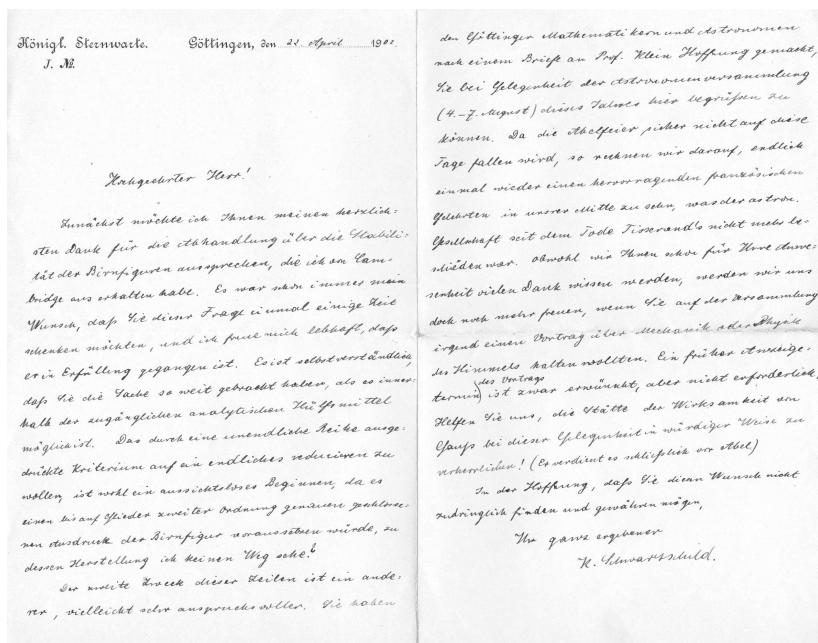 Königl. Sternwarte. Göttingen, den 22. April 1902.
J. №.
Hochgeehrter Herr!
Zunächst möchte ich Ihnen meinen herzlich-
sten Dank für die Abhandlung über die Stabili-
tät der Birnfiguren aussprechen, die ich von Cam-
bridge aus erhalten habe. Es war schon immer mein
Wunsch, daß Sie dieser Frage einmal einige Zeit
schenken möchten, und ich freue mich lebhaft, daß
er in Erfüllung gegangen ist. Es ist selbstverständlich,
daß Sie die Sache so weit gebracht haben, als es inner-
halb der zugänglichen analytischen Hülfsmittel
möglich ist. Das durch eine unendliche Reihe ausge-
drückte Kriterium auf ein endliches reducieren zu
wollen, ist wohl ein aussichtsloses Beginnen, da es
einen bis auf Glieder zweiter Ordnung genauen geschlosse-
nen Ausdruck der Birnfigur voraussetzen würde, zu
dessen Herstellung ich keinen Weg sehe.
Der zweite Zweck dieser Zeilen ist ein ande-
rer, vielleicht sehr anspruchsvoller. Sie haben
den Göttinger Mathematikern und Astronomen
nach einem Briefe an Prof. Klein Hoffnung gemacht,
Sie bei Gelegenheit der Astronomenversammlung
(4.–7. August) dieses Jahres hier begrüßen zu
können. Da die Abelfeier sicher nicht auf diese
Tage fallen wird, so rechnen wir darauf, endlich
einmal wieder einen hervorragenden französischen
Gelehrten in unsrer Mitte zu sehn, was der astron.
Gesellschaft seit dem Tode Tisserand's nicht mehr be-
schieden war. Obwohl wir Ihnen schon für Ihre Anwe-
senheit vielen Dank wissen werden, werden wir uns
doch noch mehr freuen, wenn Sie auf der Versammlung
irgend einen Vortrag über Mechanik oder Physik
des Himmels halten wollten. Ein früher Anzeige-
des Vortrags
termin ist zwar erwünscht, aber nicht erforderlich.
Helfen Sie uns, die Stätte der Wirksamkeit von
Gauss bei dieser Gelegenheit in würdiger Weise zu
verherrlichen! (Er verdient es schließlich vor Abel)
In der Hoffnung, daß Sie diesen Wunsch nicht
zudringlich finden und gewähren mögen,
Ihr ganz ergebener
K. Schwarzschild.